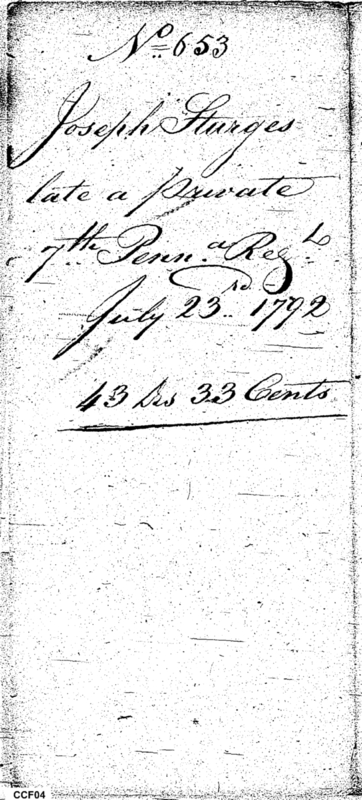 No 653
Joseph Sturges
late a private
7th Penna Regt
July 23rd 1792
43 Drs 33 Cents
CCF04